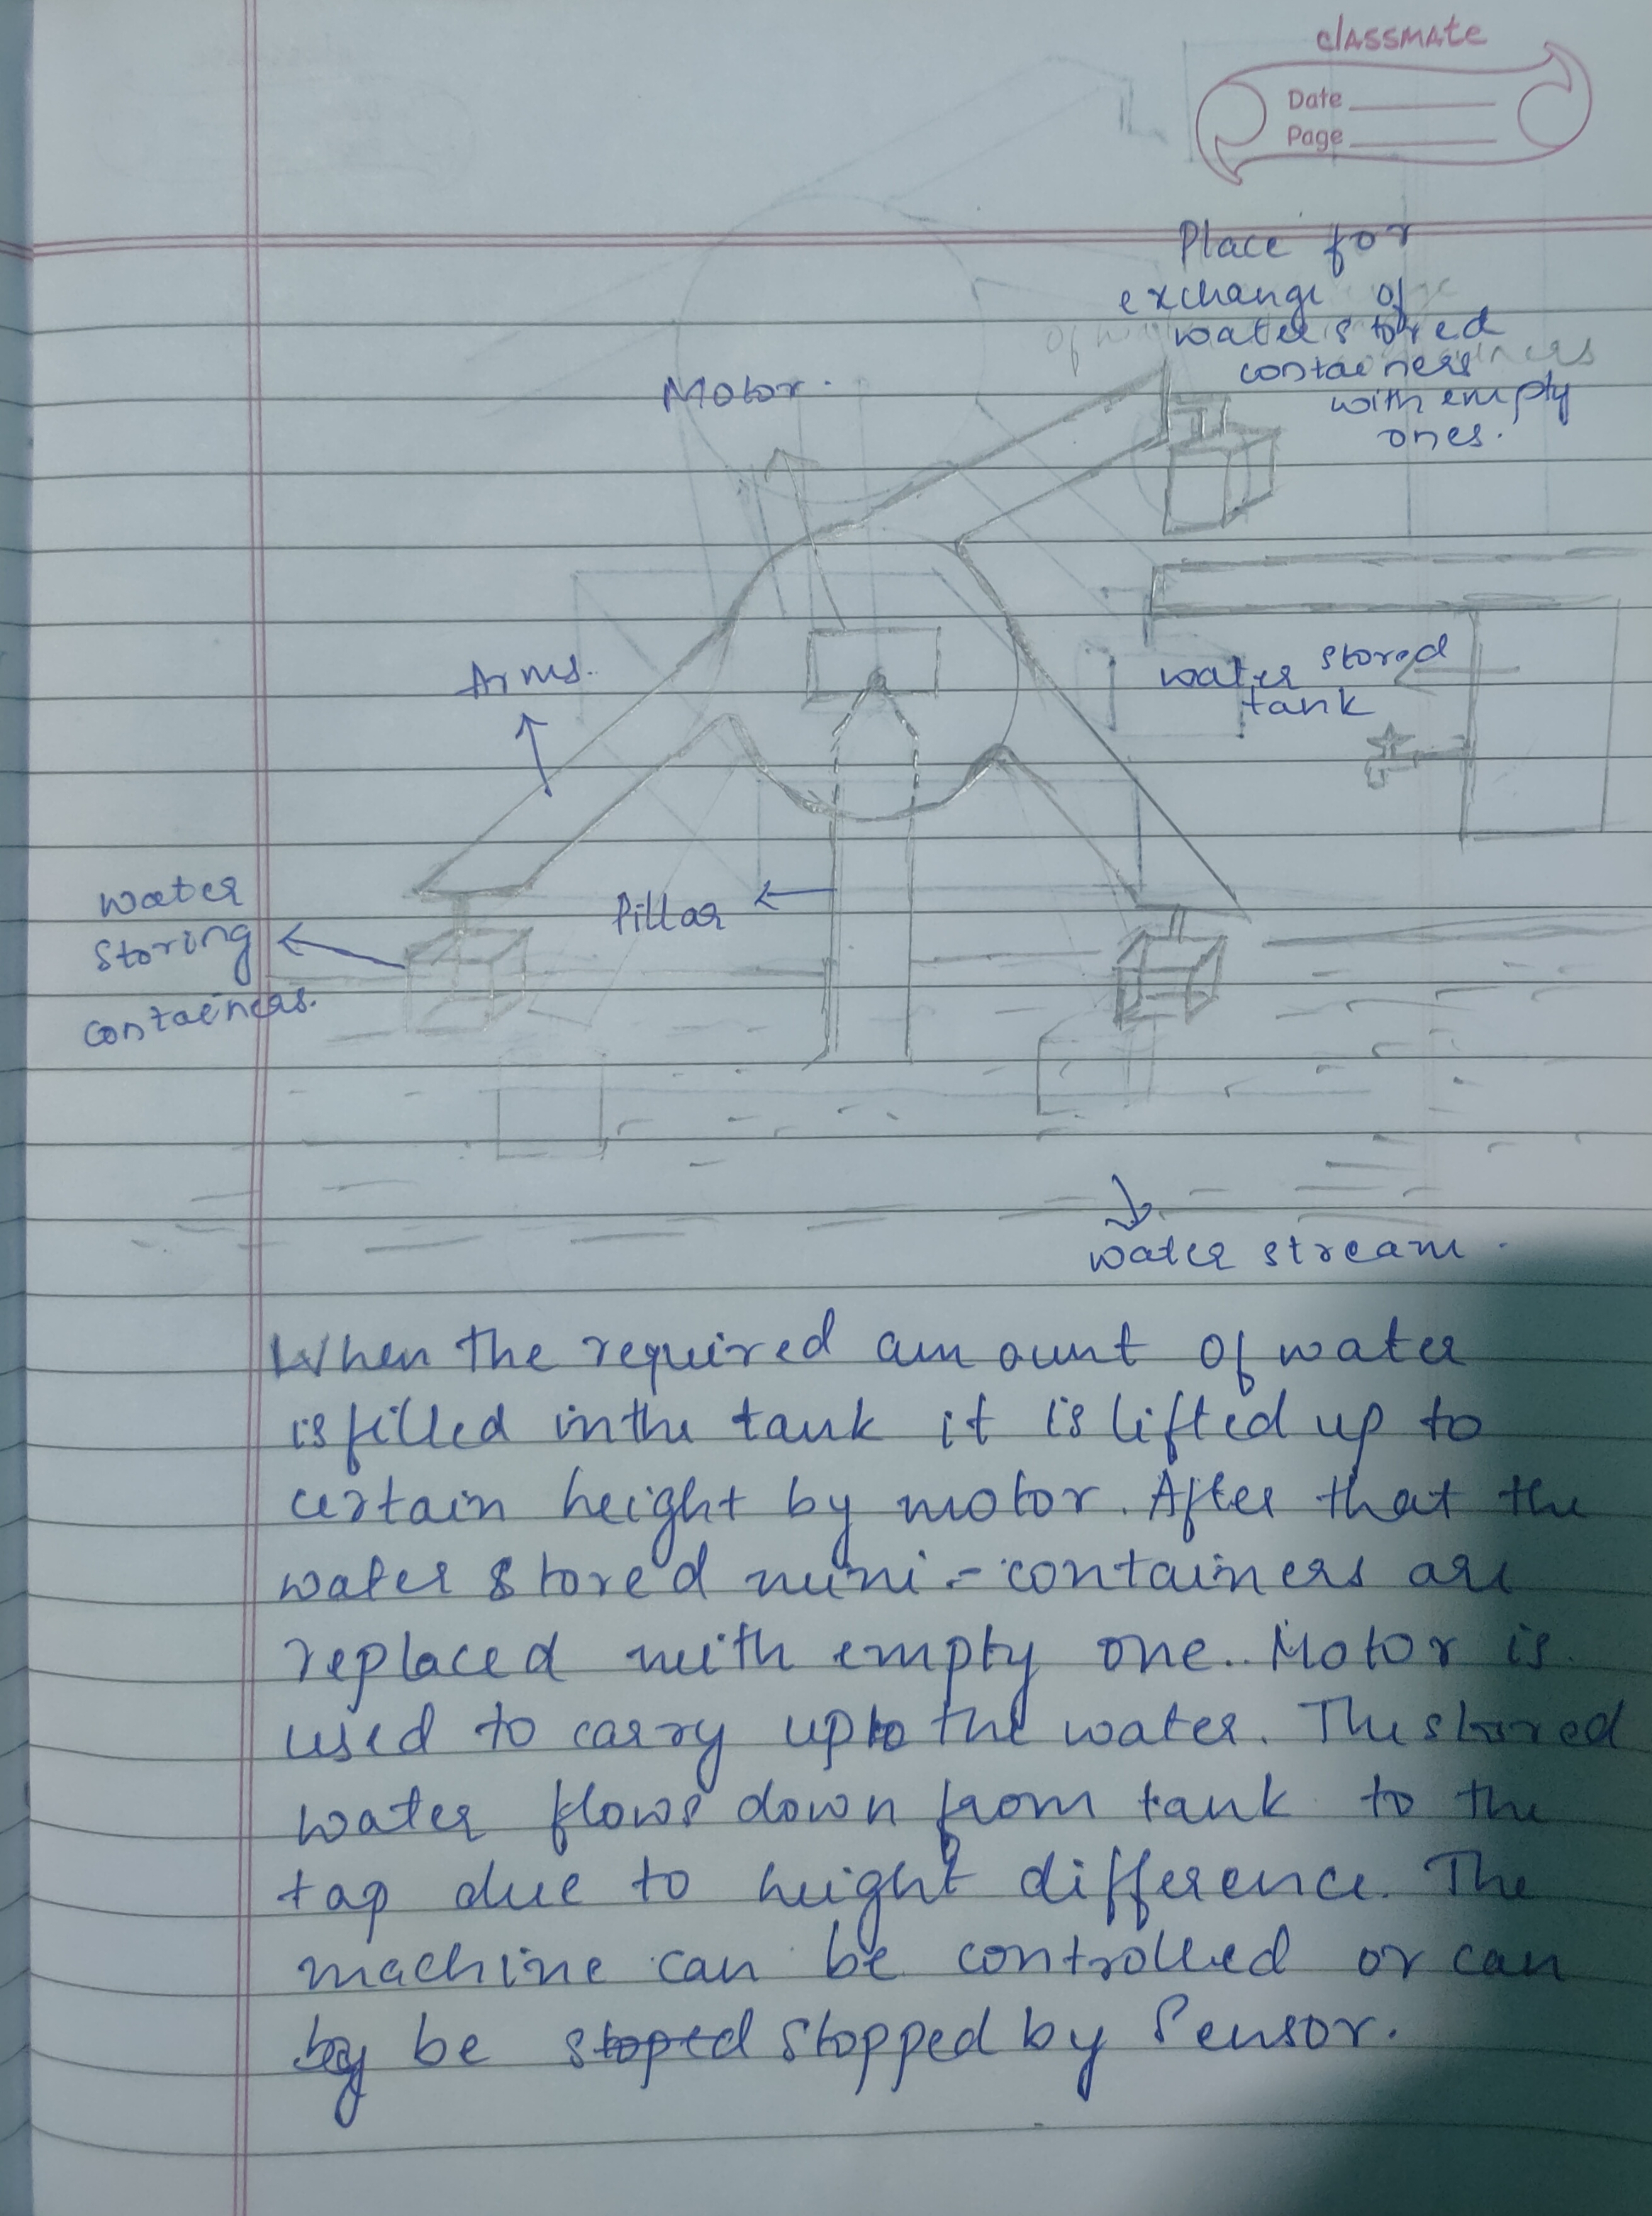 classmate
Date
Page
Place for
exchange of
water stored
containers
with empty
ones.
Motor.
Arms.
water stored
tank
water
storing
containers.
Pillar
water stream.
When the required amount of water
is filled in the tank it is lifted up to
certain height by motor. After that the
water stored mini-containers are
replaced with empty one.. Motor is
used to carry upto the water. The stored
water flows down from tank to the
tap due to height difference. The
machine can be controlled or can
by be stoped stopped by Sensor.